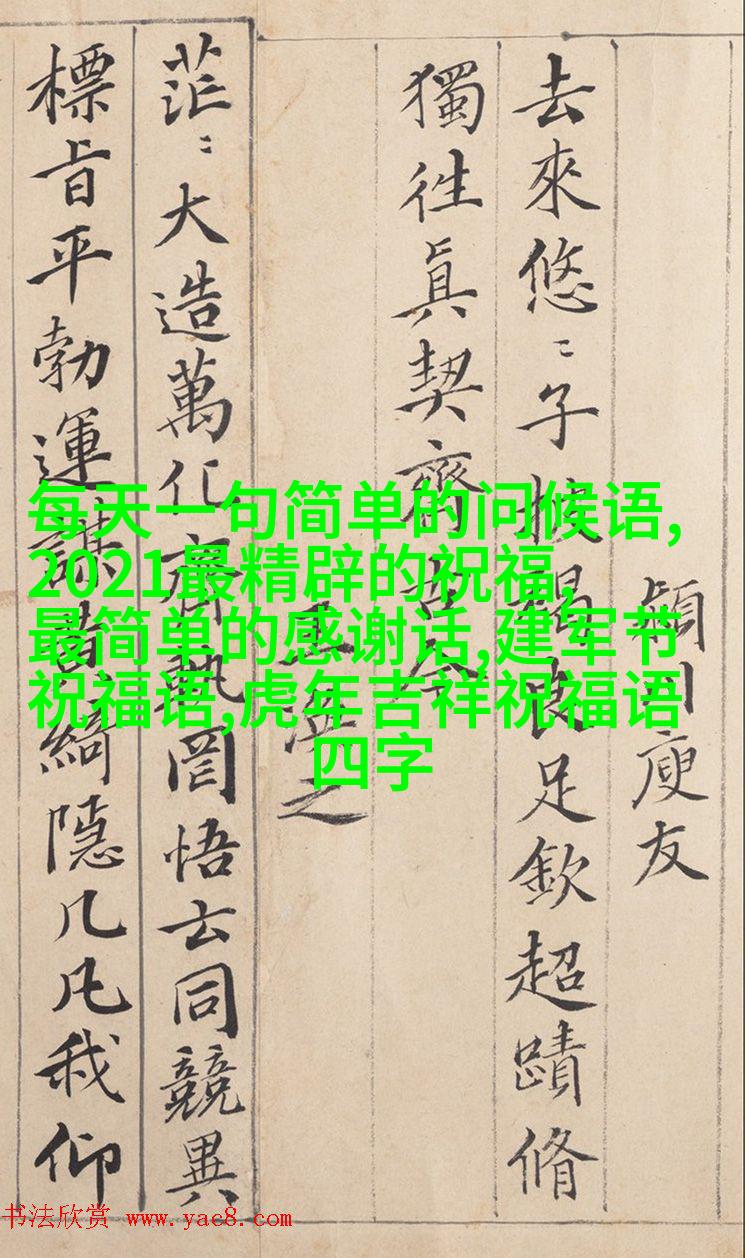 頴川庾友
去來悠〻子披褐良足欽超蹟脩
獨往眞契齊古今
王渙之
茫〻大造萬化齊軌罔悟玄同競異
標旨平勃運謀黃綺隱几凡我仰
每天一句简单的问候语,
2021最精辟的祝福,
最简单的感谢话,建军节
祝福语,虎年吉祥祝福语
四字
书法欣赏 www.yac8.com